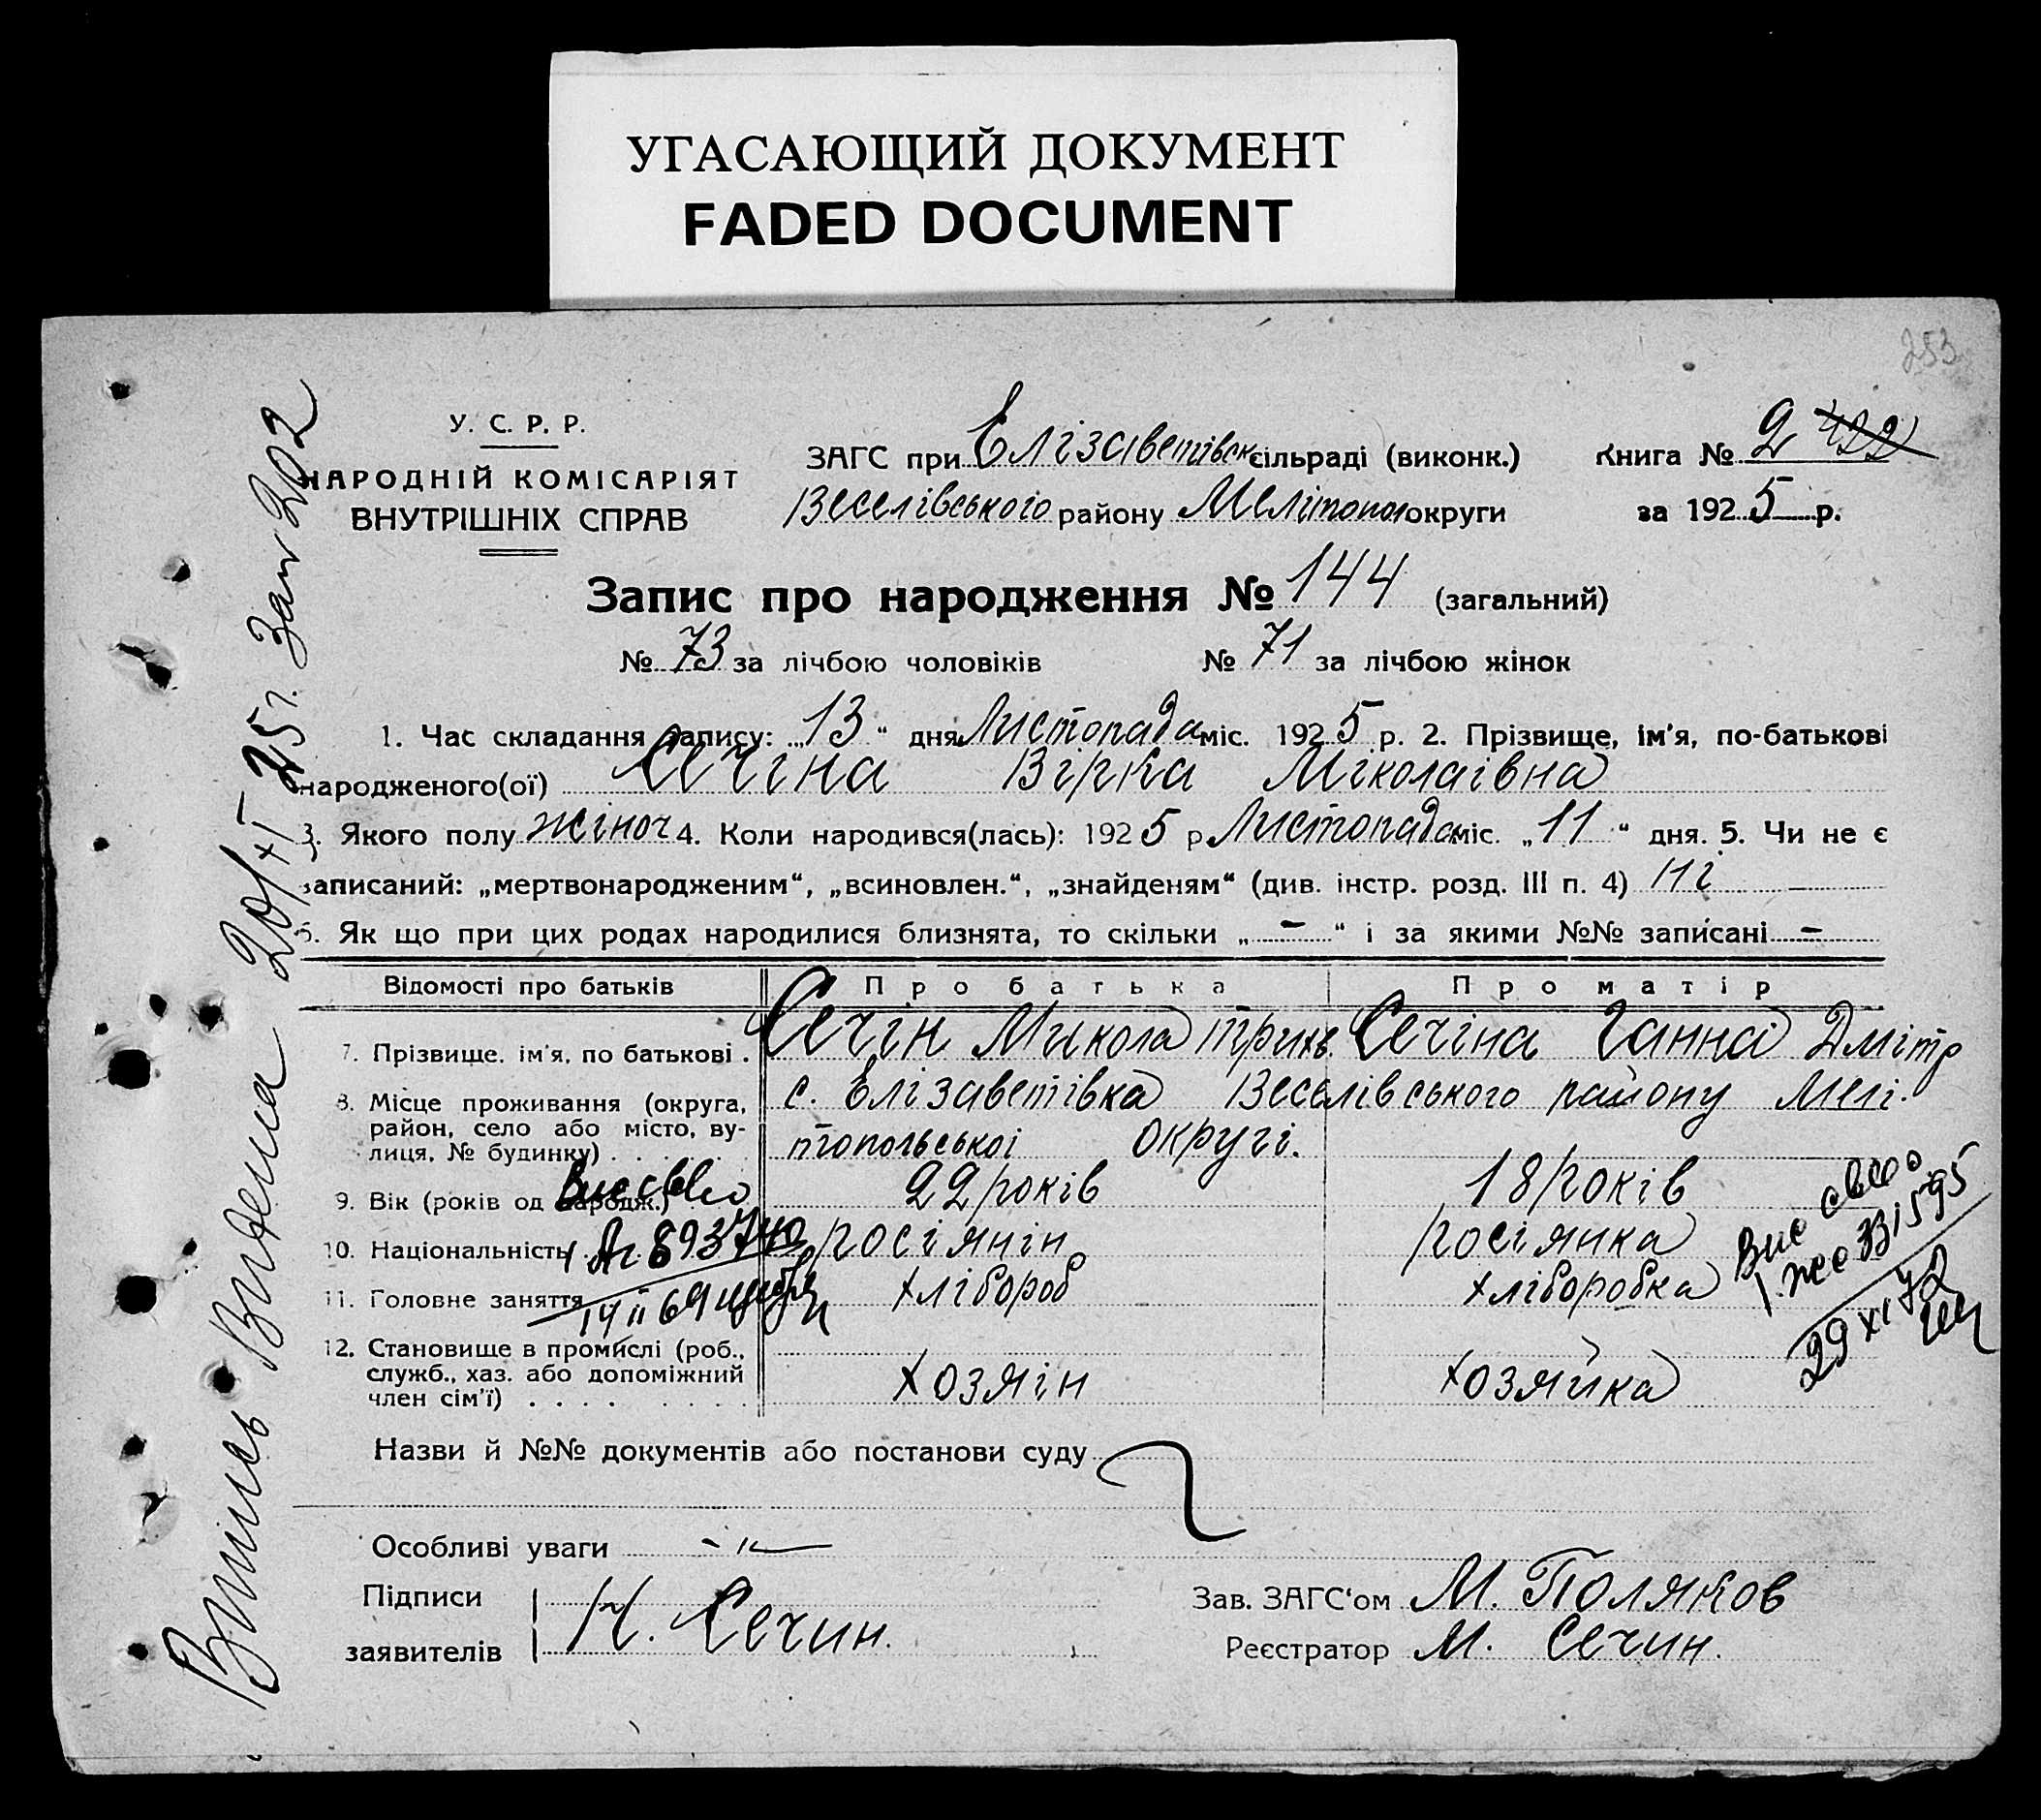 УГАСАЮЩИЙ ДОКУМЕНТ
FADED DOCUMENT
253
У. С. Р. Р.
НАРОДНІЙ КОМІСАРІЯТ
ВНУТРІШНІХ СПРАВ
ЗАГС при Елізаветівск сільраді (виконк.)
Веселівського району Мелітопол округи
Книга № 2 422
за 1925 р.
Запис про народження № 144 (загальний)
№ 73 за лічбою чоловіків № 71 за лічбою жінок
1. Час складання запису: „13“ дня Листопада міс. 1925 р. 2. Прізвище, ім'я, по-батькові
народженого(ої) Сечіна Вірка Міколаівна
3. Якого полу жіноч 4. Коли народився(лась): 1925 р Листопада міс. „11“ дня. 5. Чи не є
записаний: „мертвонародженим“, „всиновлен.“, „знайденям“ (див. інстр. розд. III п. 4) Ні
6. Як що при цих родах народилися близнята, то скільки „ – “ і за якими №№ записані –
Відомості про батьків Про батька Про матір
7. Прізвище. ім'я, по батькові . Сечін Микола Трихв. Сечіна Ганна Дмітр
8. Місце проживання (округа, с. Елізаветівка Веселівського району Мелі-
район, село або місто, ву-
лиця, № будинку) . . . . . . топольської округі.
9. Вік (років од народж.) 22 років 18 років
10. Національність росіянін росіянка
11. Головне заняття хлібороб хліборобка
12. Становище в промислі (роб.,
служб., хаз. або допоміжний хозяін хозяйка
член сім'ї) . . . . . . . .
Назви й №№ документів або постанови суду
Особливі уваги
Підписи
заявителів Н. Сечин.
Зав. ЗАГС'ом М. Поляков
Реєстратор М. Сечин.
29 XI 72